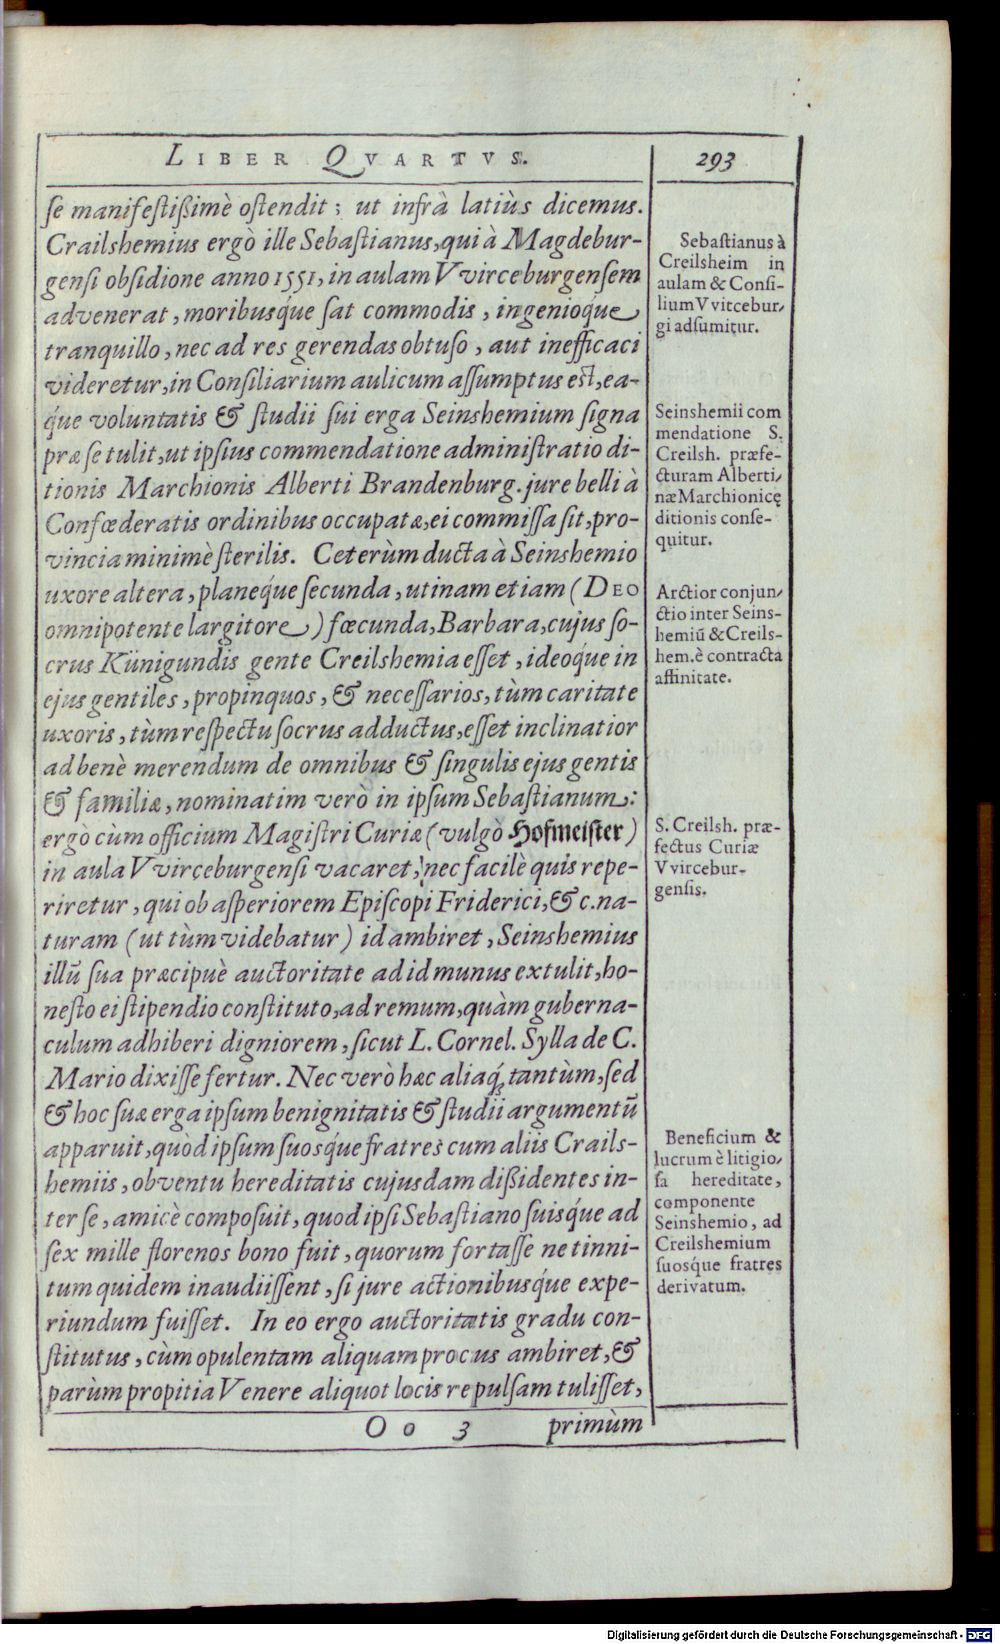 LIBER QVARTVS.
293
ſe manifeſtiſsimè oſtendit; ut infrà latiùs dicemus.
Crailshemius ergò ille Sebaſtianus, qui à Magdebur-
genſi obſidione anno 1551, in aulam VVirceburgenſem
advenerat, moribusq́ue ſat commodis, ingenioq́ue
tranquillo, nec ad res gerendas obtuſo, aut inefficaci
videretur, in Conſiliarium aulicum aſſumptus est, ea-
q́ue voluntatis & ſtudii ſui erga Seinshemium ſigna
præ ſe tulit, ut ipſius commendatione adminiſtratio di-
tionis Marchionis Alberti Brandenburg. jure belli à
Confœderatis ordinibus occupatæ, ei commiſſa ſit, pro-
vincia minimè ſterilis. Ceterùm ducta à Seinshemio
uxore altera, planeq́ue ſecunda, utinam etiam (DEO
omnipotente largitore) fœcunda, Barbara, cujus ſo-
crus Künigundis gente Creilshemia eſſet, ideoq́ue in
ejus gentiles, propinquos, & neceſſarios, tùm caritate
uxoris, tùm reſpectu ſocrus adductus, eſſet inclinatior
ad benè merendum de omnibus & ſingulis ejus gentis
& familiæ, nominatim verò in ipſum Sebaſtianum:
ergò cùm officium Magiſtri Curiæ (vulgò Hofmeiſter)
in aula VVirceburgenſi vacaret, nec facilè quis repe-
riretur, qui ob aſperiorem Epiſcopi Friderici, & c. na-
turam (ut tùm videbatur) id ambiret, Seinshemius
illū ſua præcipuè auctoritate ad id munus extulit, ho-
neſto ei ſtipendio conſtituto, ad remum, quàm guberna-
culum adhiberi digniorem, ſicut L. Cornel. Sylla de C.
Mario dixiſſe fertur. Nec verò hæc aliaq́ꝫ tantùm, ſed
& hoc ſuæ erga ipſum benignitatis & ſtudii argumentū
apparuit, quòd ipſum ſuosq́ue fratres cum aliis Crails-
hemiis, ob ventu hereditatis cujusdam diſsidentes in-
ter ſe, amicè compoſuit, quod ipſi Sebaſtiano ſuisq́ue ad
ſex mille florenos bono fuit, quorum fortaſſe ne tinni-
tum quidem inaudiiſſent, ſi jure actionibusq́ue expe-
riundum fuiſſet. In eo ergo auctoritatis gradu con-
ſtitutus, cùm opulentam aliquam procus ambiret, &
parùm propitia Venere aliquot locis repulſam tuliſſet,
O o 3
primùm
Sebaſtianus à
Creilsheim in
aulam & Conſi-
lium VVitcebur-
gi adſumitur.
Seinshemii com
mendatione S.
Creilsh. præfe-
cturam Alberti-
næ Marchionicę
ditionis conſe-
quitur.
Arctior conjun-
ctio inter Seins-
hemiū & Creils-
hem. è contracta
affinitate.
S. Creilsh. præ-
fectus Curiæ
VVircebur-
genſis.
Beneficium &
lucrum è litigio-
ſa hereditate,
componente
Seinshemio, ad
Creilshemium
ſuosq́ue fratres
derivatum.
Digitalisierung gefördert durch die Deutsche Forschungsgemeinschaft - DFG